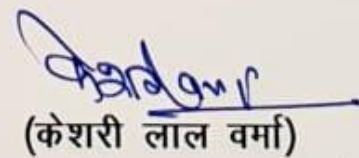 (केशरी लाल वर्मा)